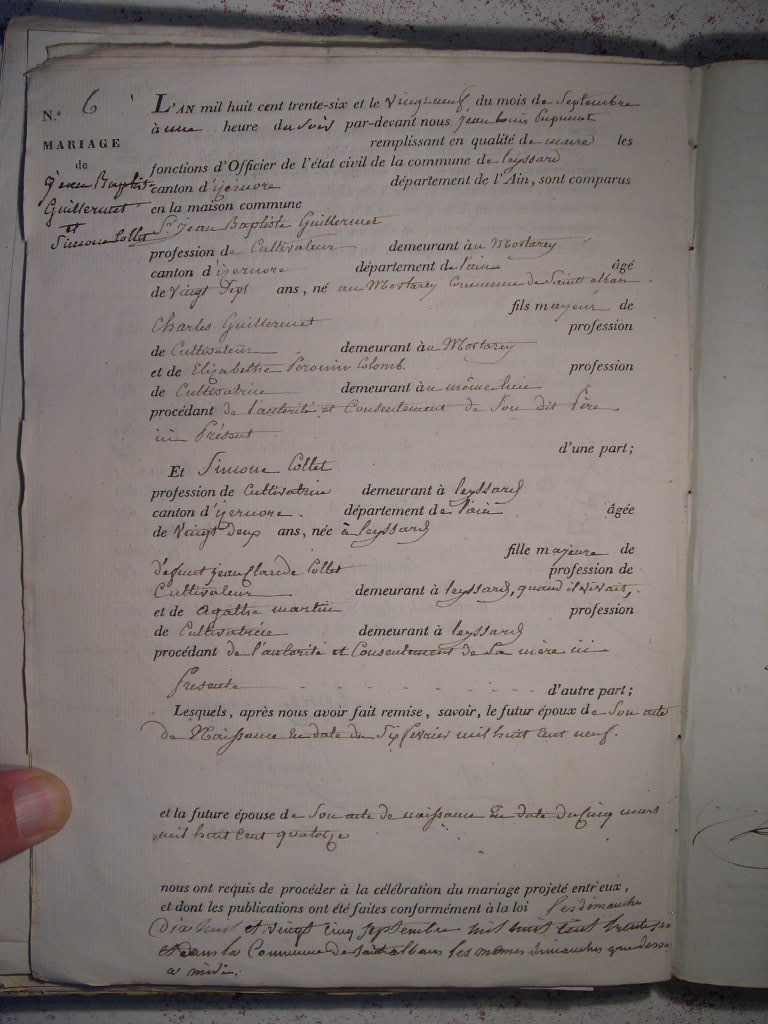 N.º 6
MARIAGE
de
Jean Baptiste
Guillermet
et
Simone Collet
L'AN mil huit cent trente-six et le vingt neuf du mois de Septembre
à une heure du soir par-devant nous Jean Louis
remplissant en qualité de maire les
fonctions d'Officier de l'état civil de la commune de leyssard
canton d'izernore département de l'Ain, sont comparus
en la maison commune
Sr. Jean Baptiste Guillermet
profession de Cultivateur demeurant à u Mortarey
canton d'izernore département de l'ain âgé
de vingt Sept ans, né au Mortarey Commune de Saint alban
fils majeur de
Charles Guillermet profession
de Cultivateur demeurant à u Mortarey
et de Elizabethe Peronin Colomb. profession
de Cultivatrice demeurant à u même lieu
procédant de l'autorité et Consentement de Son dit Père
ici Présent d'une part;
Et Simone Collet
profession de Cultivatrice demeurant à leyssard
canton d'izernore. département de l'ain âgée
de vingt deux ans, née à leyssard
fille majeure de
défunt jean Claude Collet profession de
Cultivateur demeurant à leyssard, quand il vivait,
et de agathe martin profession
de Cultivatrice demeurant à leyssard
procédant de l'autorité et Consentement de Sa mère ici
Presente d'autre part;
Lesquels, après nous avoir fait remise, savoir, le futur époux de Son acte
de Naissance En date du Six fevrier mil huit cent neuf.
et la future épouse de Son acte de naissance En date du Cinq mars
mil huit Cent quatorze
nous ont requis de procéder à la célébration du mariage projeté entr'eux,
et dont les publications ont été faites conformément à la loi les dimanches
Dix huit et vingt Cinq Septembre mil huit Cent trente six
et dans la Commune de Saint alban les memes dimanches que dessus
a midi.